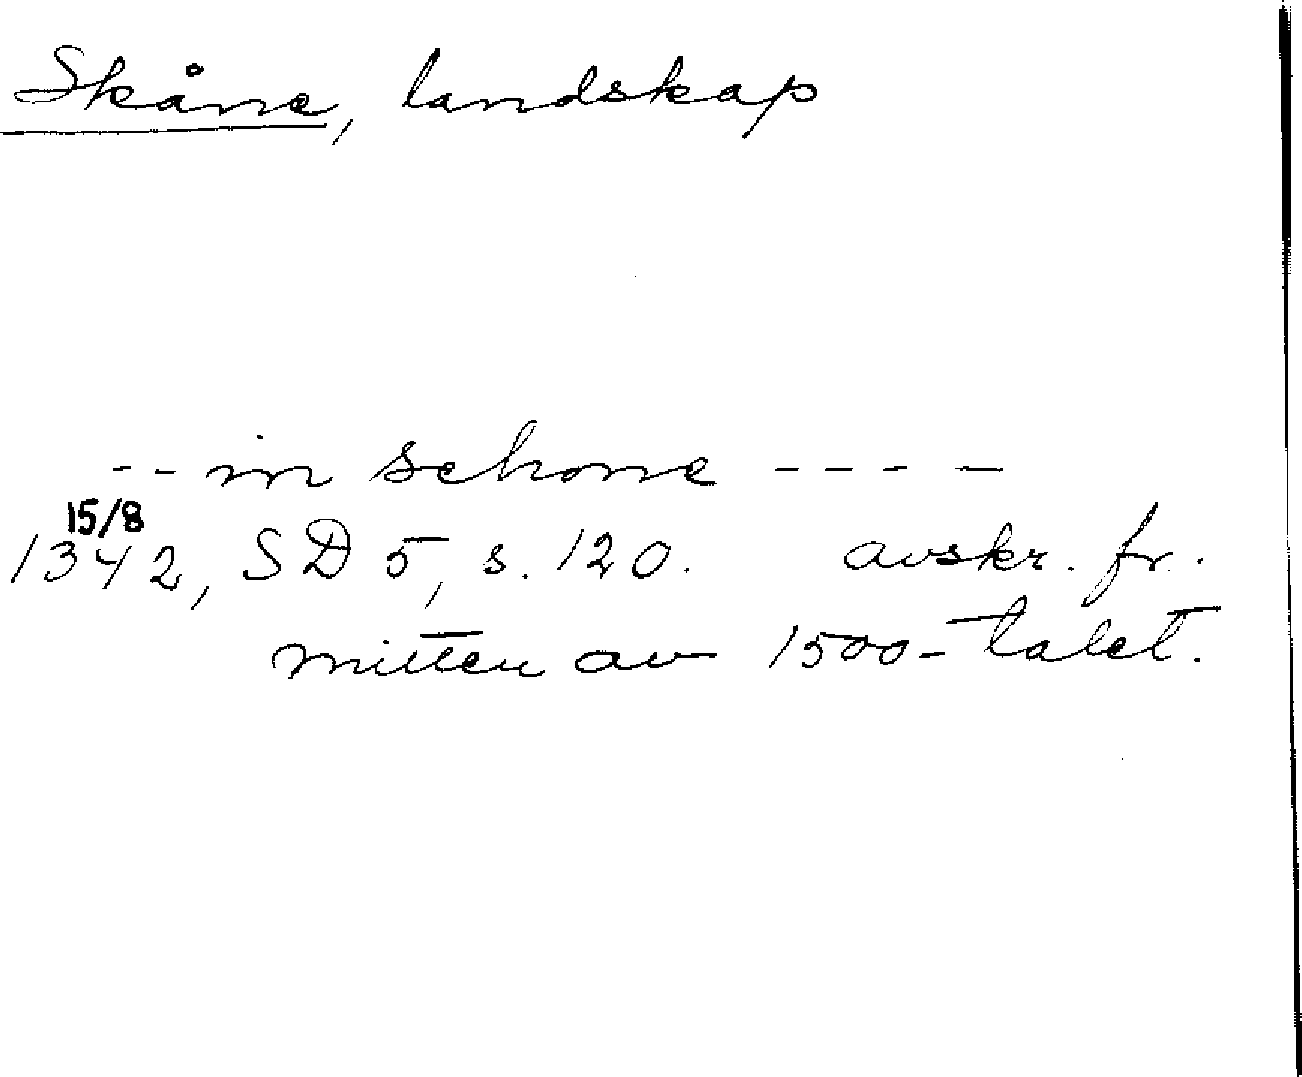 Skåne, landskap
-- in schone ----
15/8
1342, SD 5, s. 120. avskr. fr.
mitten av 1500-talet.